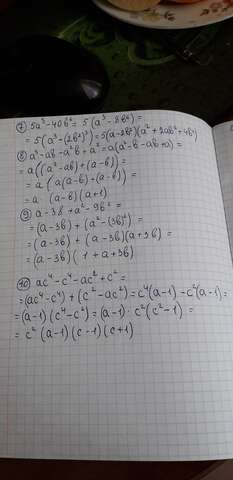 ⑦ 5a³-40b³ = 5(a³-8b³) =
= 5(a³-(2b)³) = 5(a-2b)(a²+2ab+4b²)
⑧ a³-ab-a²b+a² = a(a²-b-ab+a) =
= a((a²-ab)+(a-b)) =
= a(a(a-b)+(a-b)) =
= a (a-b)(a+1)
⑨ a-3b+a²-9b² =
= (a-3b)+(a²-(3b)²) =
= (a-3b)+(a-3b)(a+3b) =
= (a-3b)(1+a+3b)
⑩ ac⁴-c⁴-ac²+c² =
= (ac⁴-c⁴)+(c²-ac²) = c⁴(a-1)-c²(a-1) =
= (a-1)(c⁴-c²) = (a-1)·c²(c²-1) =
= c²(a-1)(c-1)(c+1)